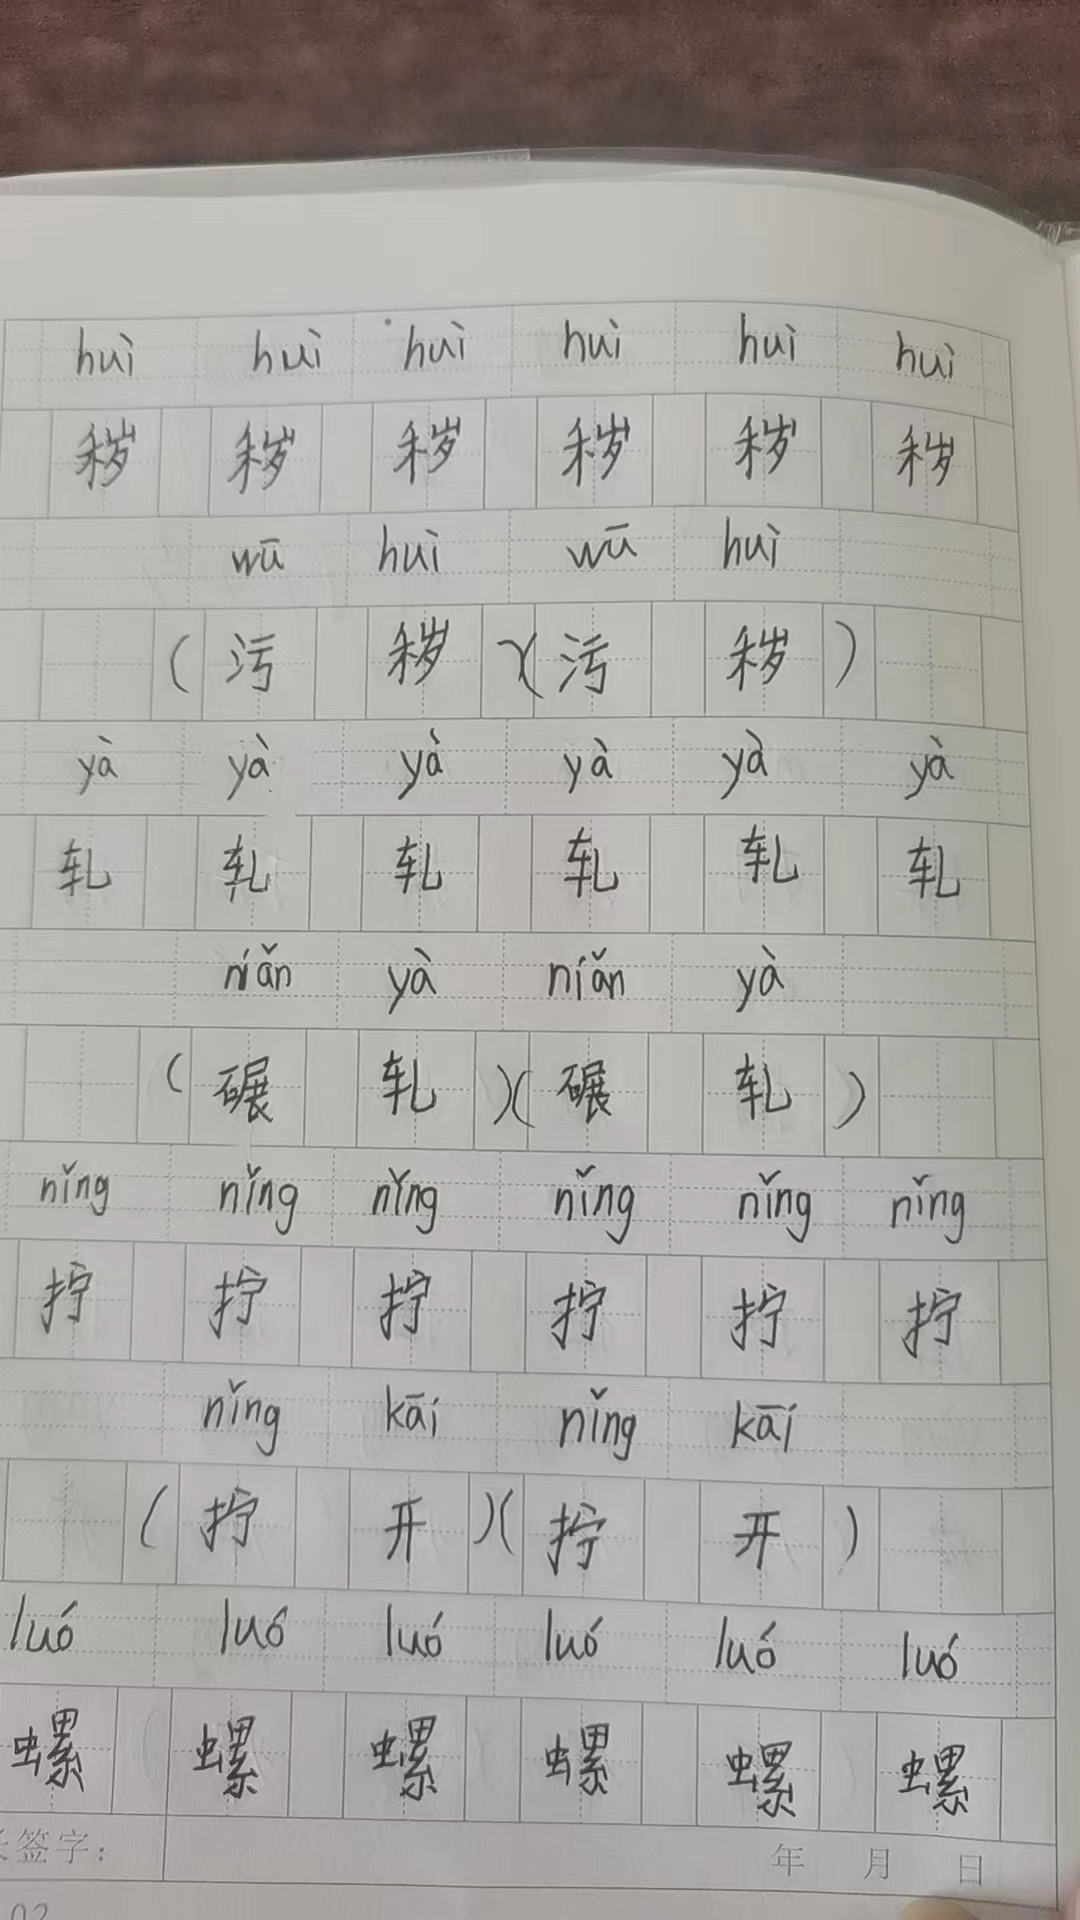 huì huì huì huì huì huì
秽 秽 秽 秽 秽 秽
wū huì wū huì
(污 秽)(污 秽)
yà yà yà yà yà yà
轧 轧 轧 轧 轧 轧
niǎn yà niǎn yà
(碾 轧)(碾 轧)
nǐng nǐng nǐng nǐng nǐng nǐng
拧 拧 拧 拧 拧 拧
nǐng kāi nǐng kāi
(拧 开)(拧 开)
luó luó luó luó luó luó
螺 螺 螺 螺 螺 螺
签字: 年 月 日
02